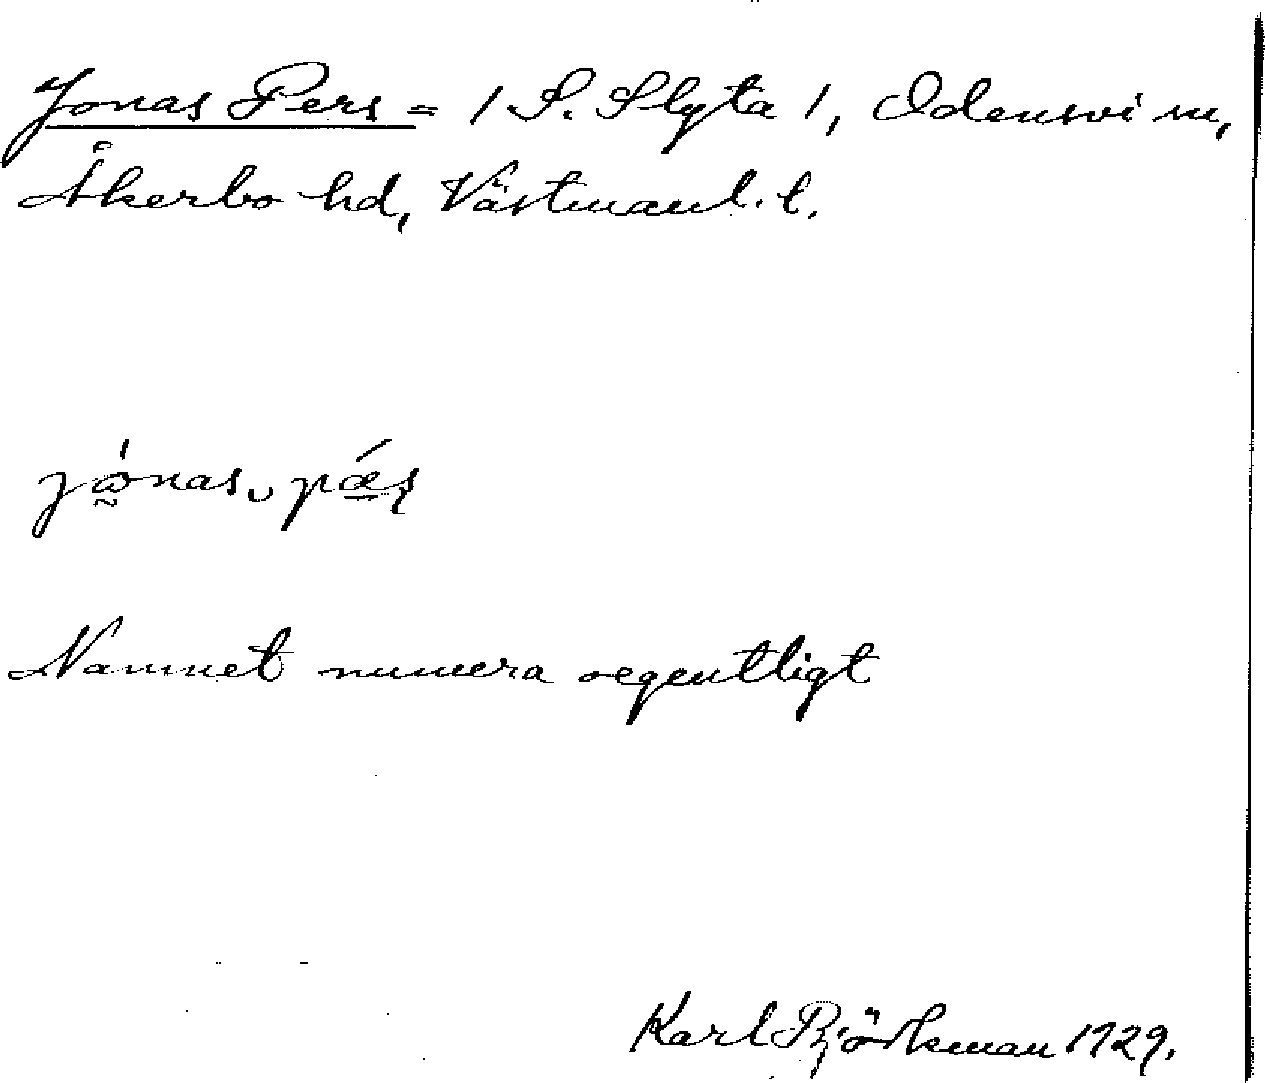 Jonas Pers = / S. Slyta /, Odensvi sn,
Åkerbo hd, Västmanl. l.
jónas, pǽṣ
Namnet numera oegentligt
Karl Björkman 1929.